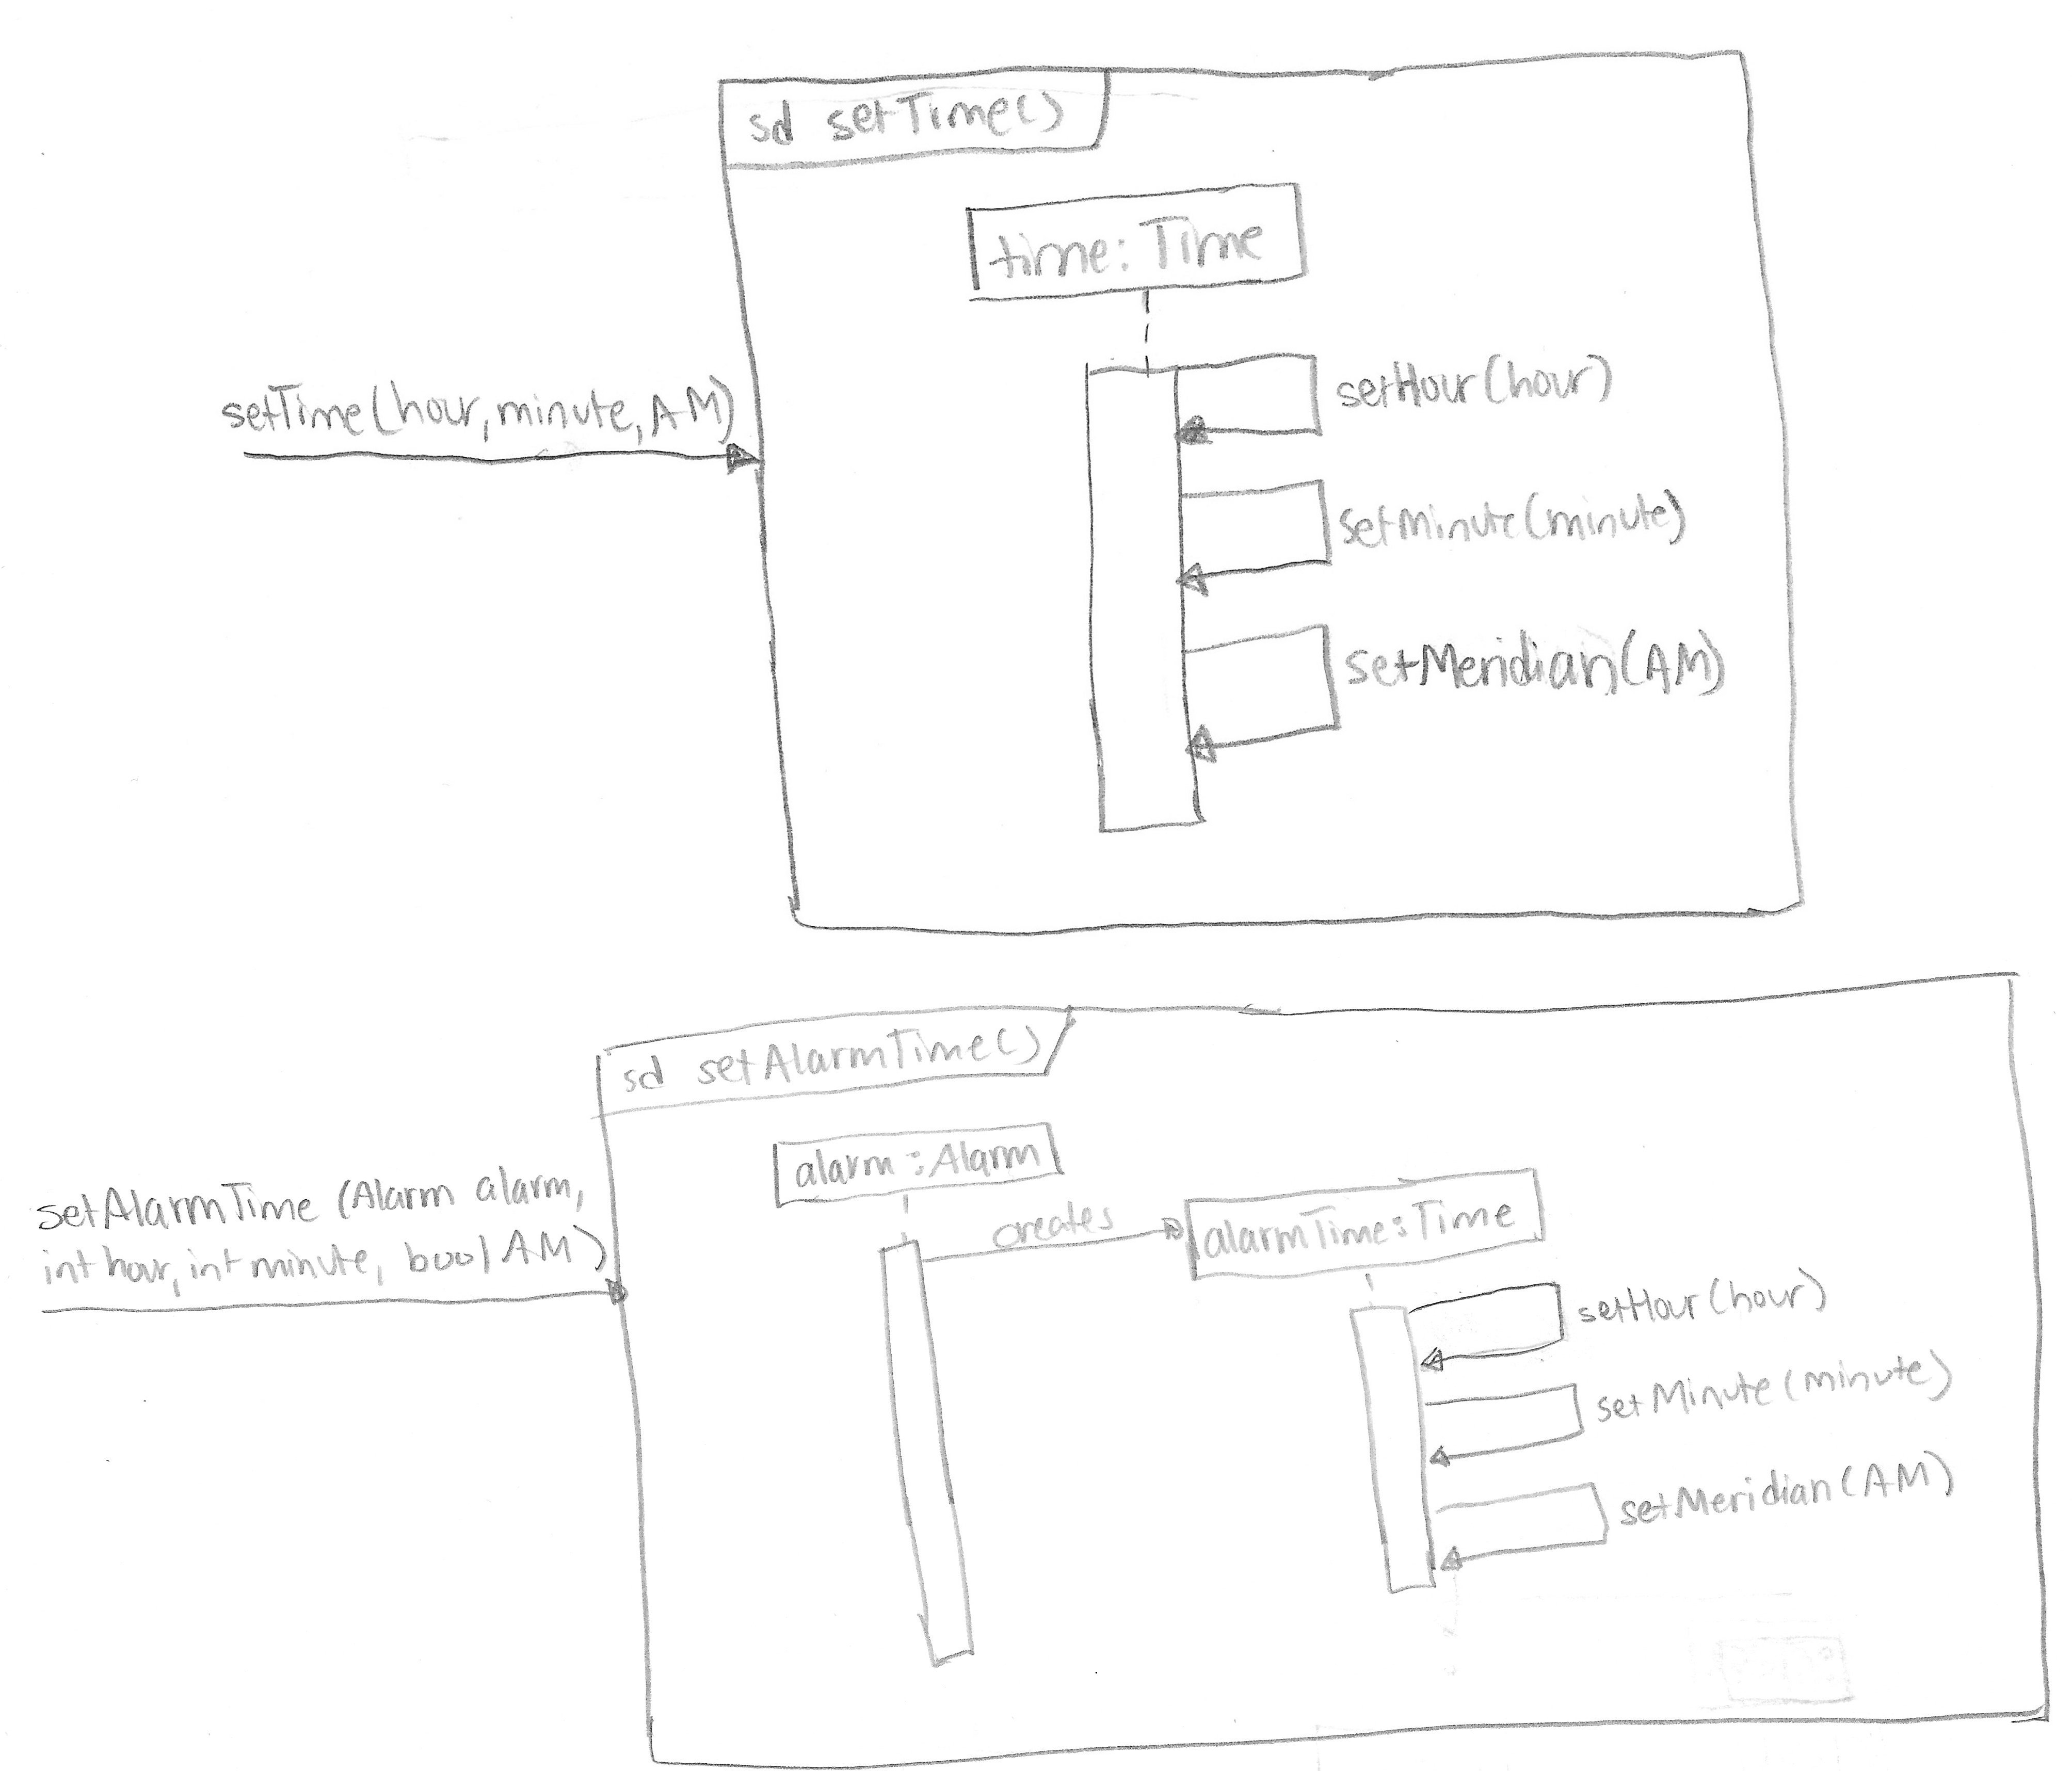 sd setTime()
time: Time
setTime(hour, minute, AM)
setHour(hour)
setMinute(minute)
setMeridian(AM)
sd setAlarmTime()
alarm: Alarm
setAlarmTime (Alarm alarm,
int hour, int minute, bool AM)
creates
alarmTime: Time
setHour(hour)
setMinute(minute)
setMeridian(AM)